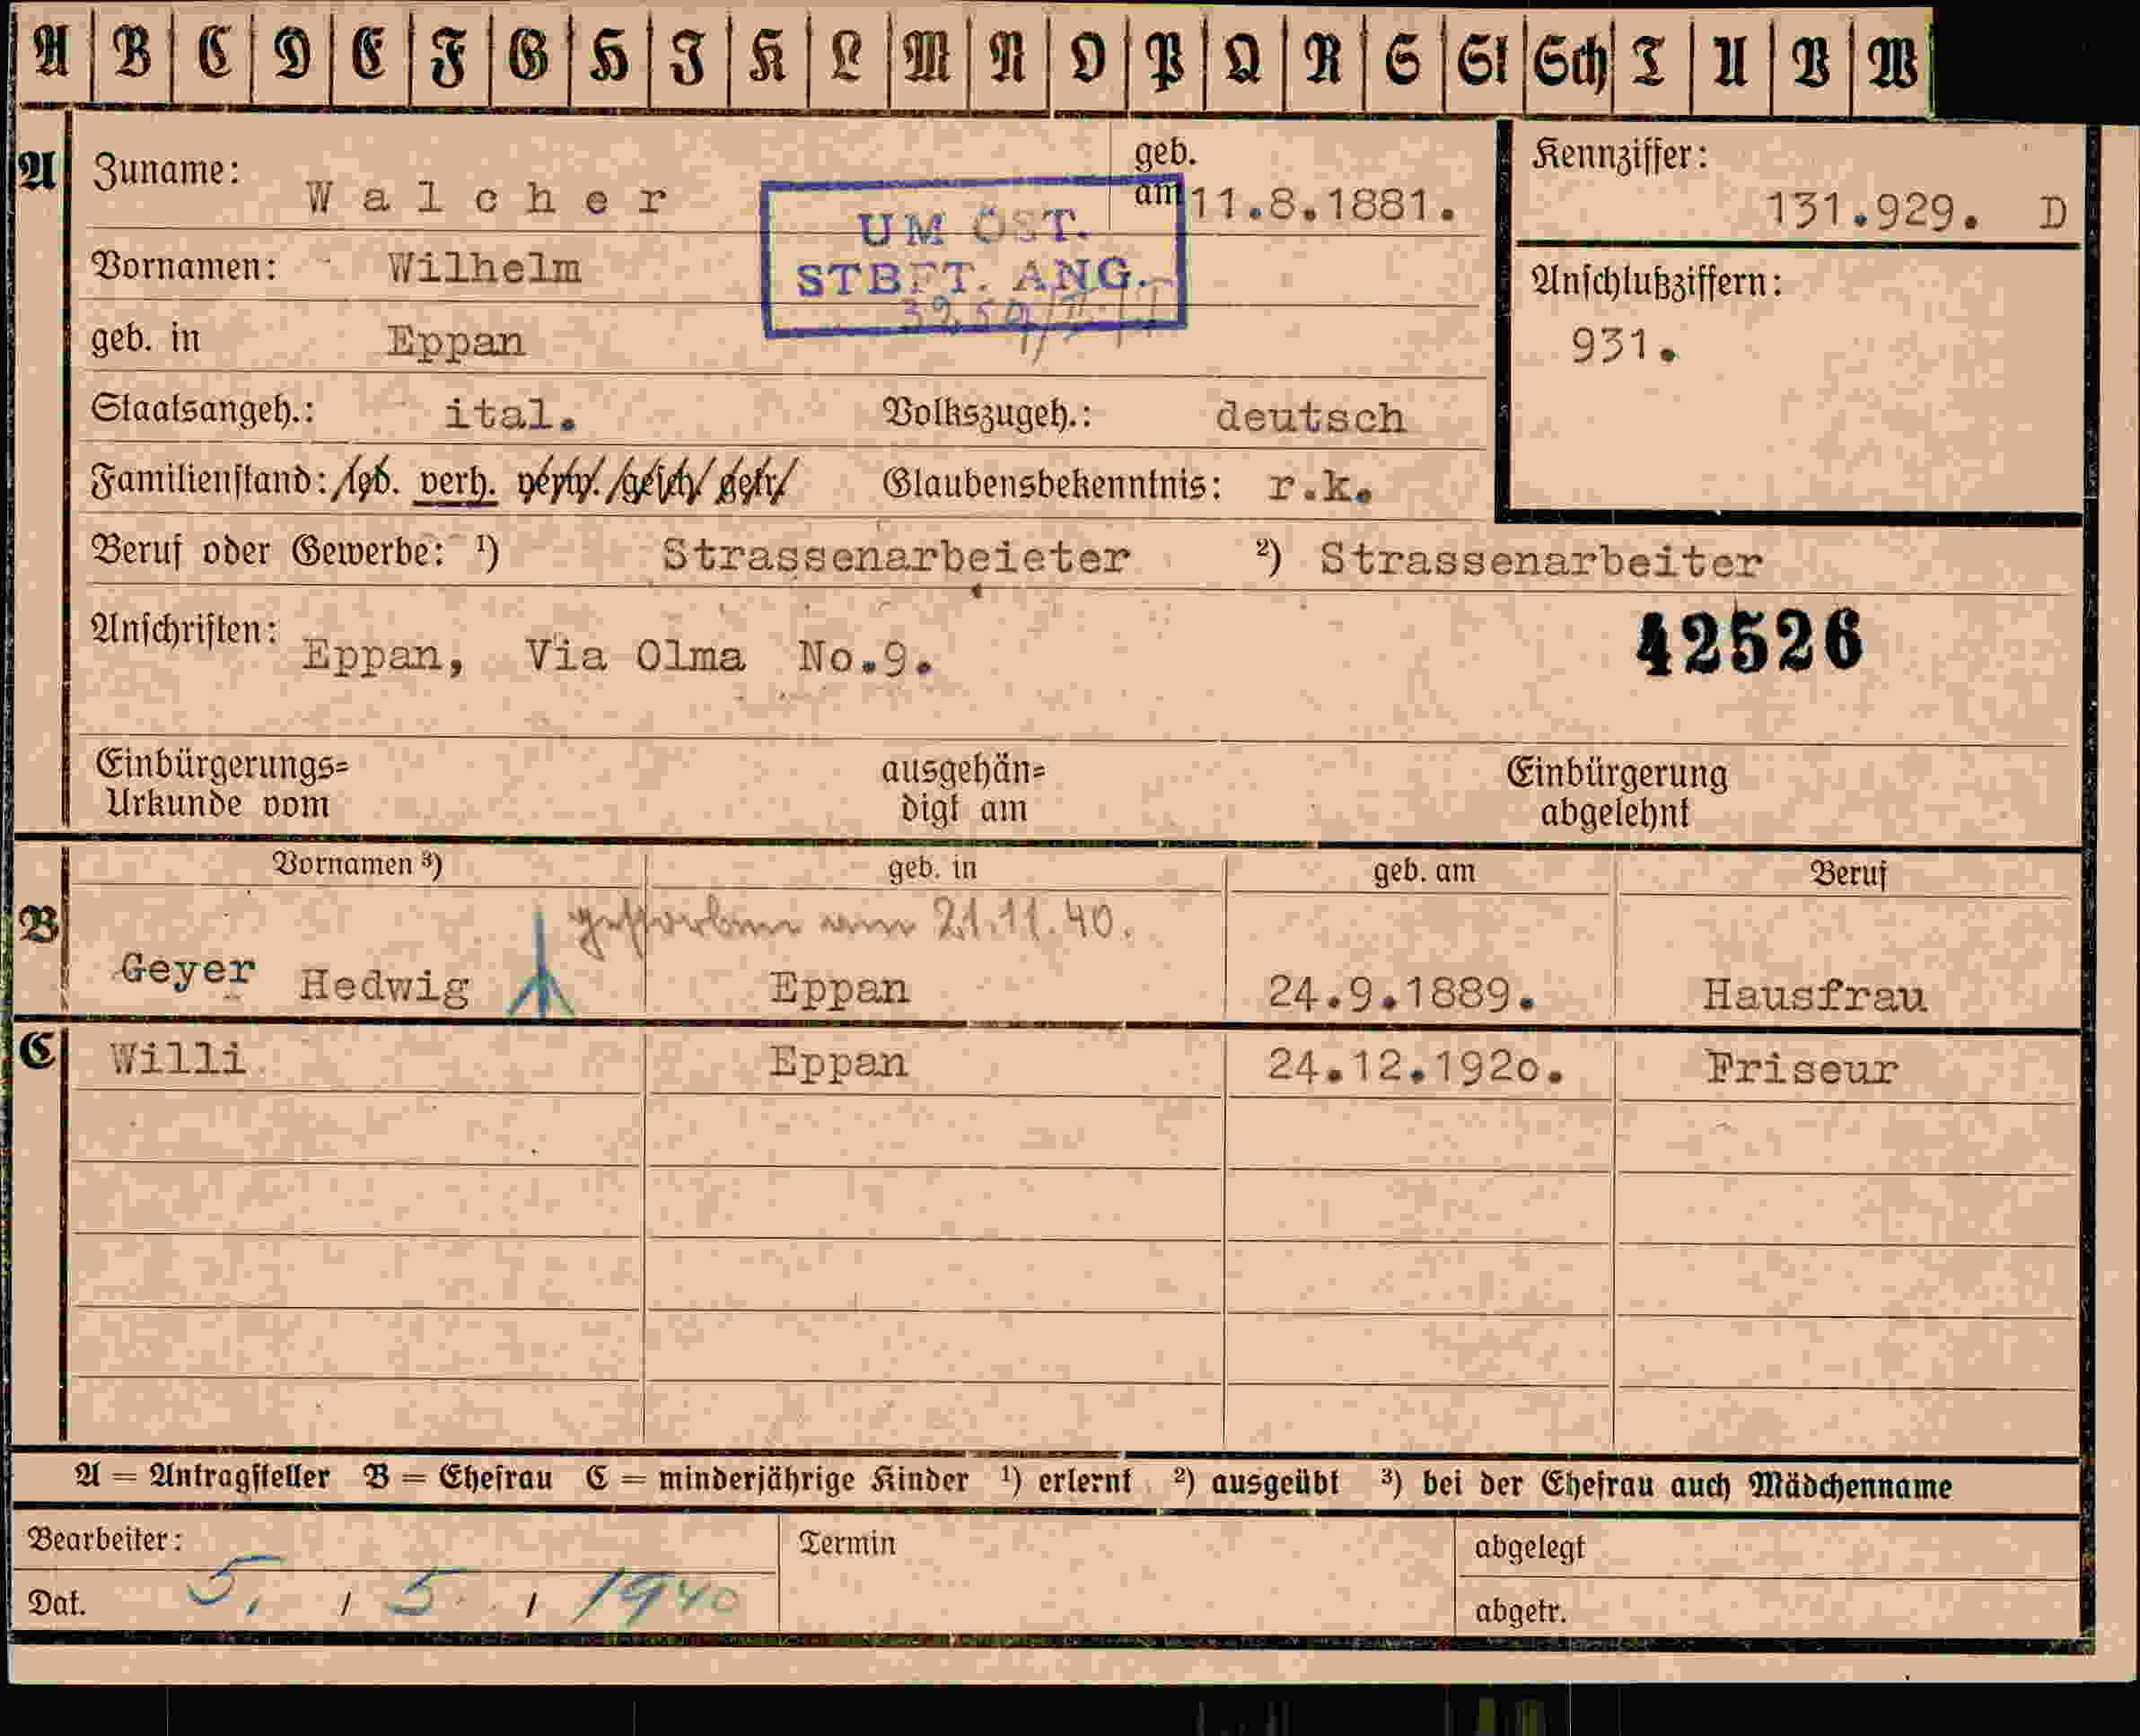 A B C D E F G H I K L M N O P Q R S St Sch T U V W
A
Zuname: Walcher
geb. am 11.8.1881.
Kennziffer: 131.929. D
UM ÖST.
STBFT. ANG.
Vornamen: Wilhelm
Anschlußziffern:
931.
geb. in Eppan
Staatsangeh.: ital. Volkszugeh.: deutsch
Familienstand: led. verh. verw. gesch. getr. Glaubensbekenntnis: r.k.
Beruf oder Gewerbe: ¹) Strassenarbeieter ²) Strassenarbeiter
42526
Anschriften: Eppan, Via Olma No.9.
Einbürgerungs=
Urkunde vom
ausgehän=
digt am
Einbürgerung
abgelehnt
Vornamen ³) geb. in geb. am Beruf
B
gestorben am 21.11.40.
Geyer Hedwig Eppan 24.9.1889. Hausfrau
C Willi Eppan 24.12.192o. Friseur
A = Antragsteller B = Ehefrau C = minderjährige Kinder ¹) erlernt ²) ausgeübt ³) bei der Ehefrau auch Mädchenname
Bearbeiter:
Termin
abgelegt
Dat. 5. / 5. / 1940
abgetr.